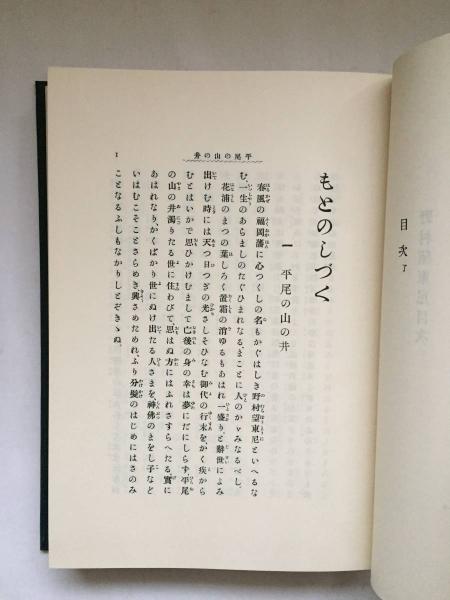 目次了
もとのしづく
一 平尾の山の井
春風の福岡藩に心つくしの名もかぐはしき野村望東尼といへるな
む、一生のあらましのたぐひまれなる、まことに人のかゞみなるべし、
花浦のまつの葉しろく置霜の消ゆるもあはれ一盛りと辭世によみ
出けむ時には天つ日つぎの光さしそひなむ御代の行末を、かく疾から
むとはいかで思ひかけまして亡後の身の幸は夢にだにしらず、平尾
の山の井濁りたる世に住わびて、思はぬ方にはふれさすらへたる、實に
あはれなり、かくばかり世にぬけ出たる人さまを、神佛のまをし子など
いはむこそことさらめき、興さめためれ、ふり分髮のはじめにはさのみ
ことなるふしもなかりしとぞきゝぬ。
平尾の山の井
1